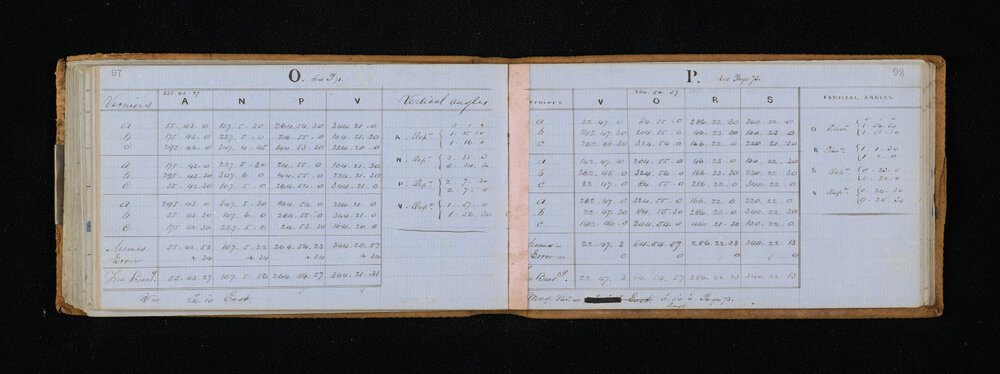 97
O. See P. 71.
235.43.27
Verniers A N P V Vertical angles
a 55.43.0 107.5.30 264.54.30 344.21.0
b 175.43.0 227.5.0 24.55.0 104.21.30
c 295.42.0 347.4.45 144.53.30 224.20.0
a 175.43.0 227.5.30 24.55.0 104.21.30
b 295.43.30 347.6.0 144.55.0 224.21.30
c 55.42.30 107.5.0 264.54.0 344.21.0
a 295.43.0 347.5.30 144.54.0 224.21.0
b 55.43.30 107.6.0 264.55.0 344.21.0
c 175.42.30 227.5.0 24.53.30 104.20.0
Means 55.42.53 107.5.22 264.54.23 344.20.57
Error +34 +34 +34 +34
True Bear.g 55.43.27 107.5.56 264.54.57 344.21.31
V = East.
A. Dep.n 1.15.30
1.16.0
N. Dep.n 3.35.0
3.34.30
P. Dep.n 2.7.30
2.7.0
V. Dep.n 1.57.0
1.56.30
98
P. See Page 72.
244.54.57
Verniers V O R S VERTICAL ANGLES
a 22.47.0 64.55.0 286.22.30 340.22.0
b 142.47.30 204.55.0 46.23.30 100.23.0
c 262.46.30 324.54.0 166.22.0 220.21.30
a 142.47.0 204.55.0 46.23.0 100.22.30
b 262.48.0 324.56.0 166.23.30 220.22.30
c 22.47.0 84.55.0 286.22.0 340.22.0
a 262.47.0 324.55.0 166.22.0 220.22.0
b 22.47.30 84.55.30 286.23.0 340.22.30
c 142.46.0 204.54.0 46.21.30 100.21.0
Means = 22.47.3 64.54.57 286.22.33 340.22.13
Error = 0 0 0 0
True Bear.g 22.47.3 .57 286.22.33 340.22.13
Mag. Var = East Page 72.
East
O Elev.n
1.15.30
R Elev.n 1.1.30
1.2.0
S Dep.n 0.23.0
0.22.0
V Dep.n 0.26.30
0.25.30